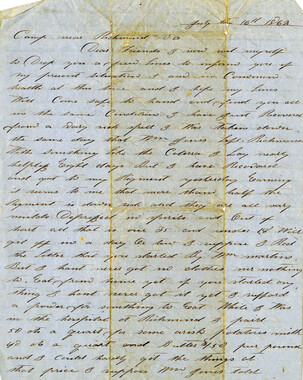 July the 10th 1862
Camp near Richmond Va
Dear Friends I now set myself
to Drop you a few lines to inform you of
my present situation I am in Common
health at this time and I hope my lines
Will Come safe to hand and find you all
in the same Condition I have Just Recovered
from a Very sick spell I Was taken down
the same day that Wm Jones left Richmond
With something like the Colera I lay nearly
helpless Eight days But I have Recovered
and got to my Regiment yesterday Evening
it seems to me that more than half the
Regiment is down sick and they are all very
much Depressed in spirits and out of
heart all that is over 35 and under 18 Will
get off in a day or two I suppose I Read
the letter that you started By Wm martin
But I have never got no clothes nor nothing
to Eat from home yet if you started any
thing I have never got it yet I suffered
for something to Eat While I Was
in the hospital at Richmond I paid
50 cts a quart for some irish potatoes milk
40 cts a quart and Butter $1.50 per pound
and I Could hardly get the things at
that price I suppose Wm Jones told